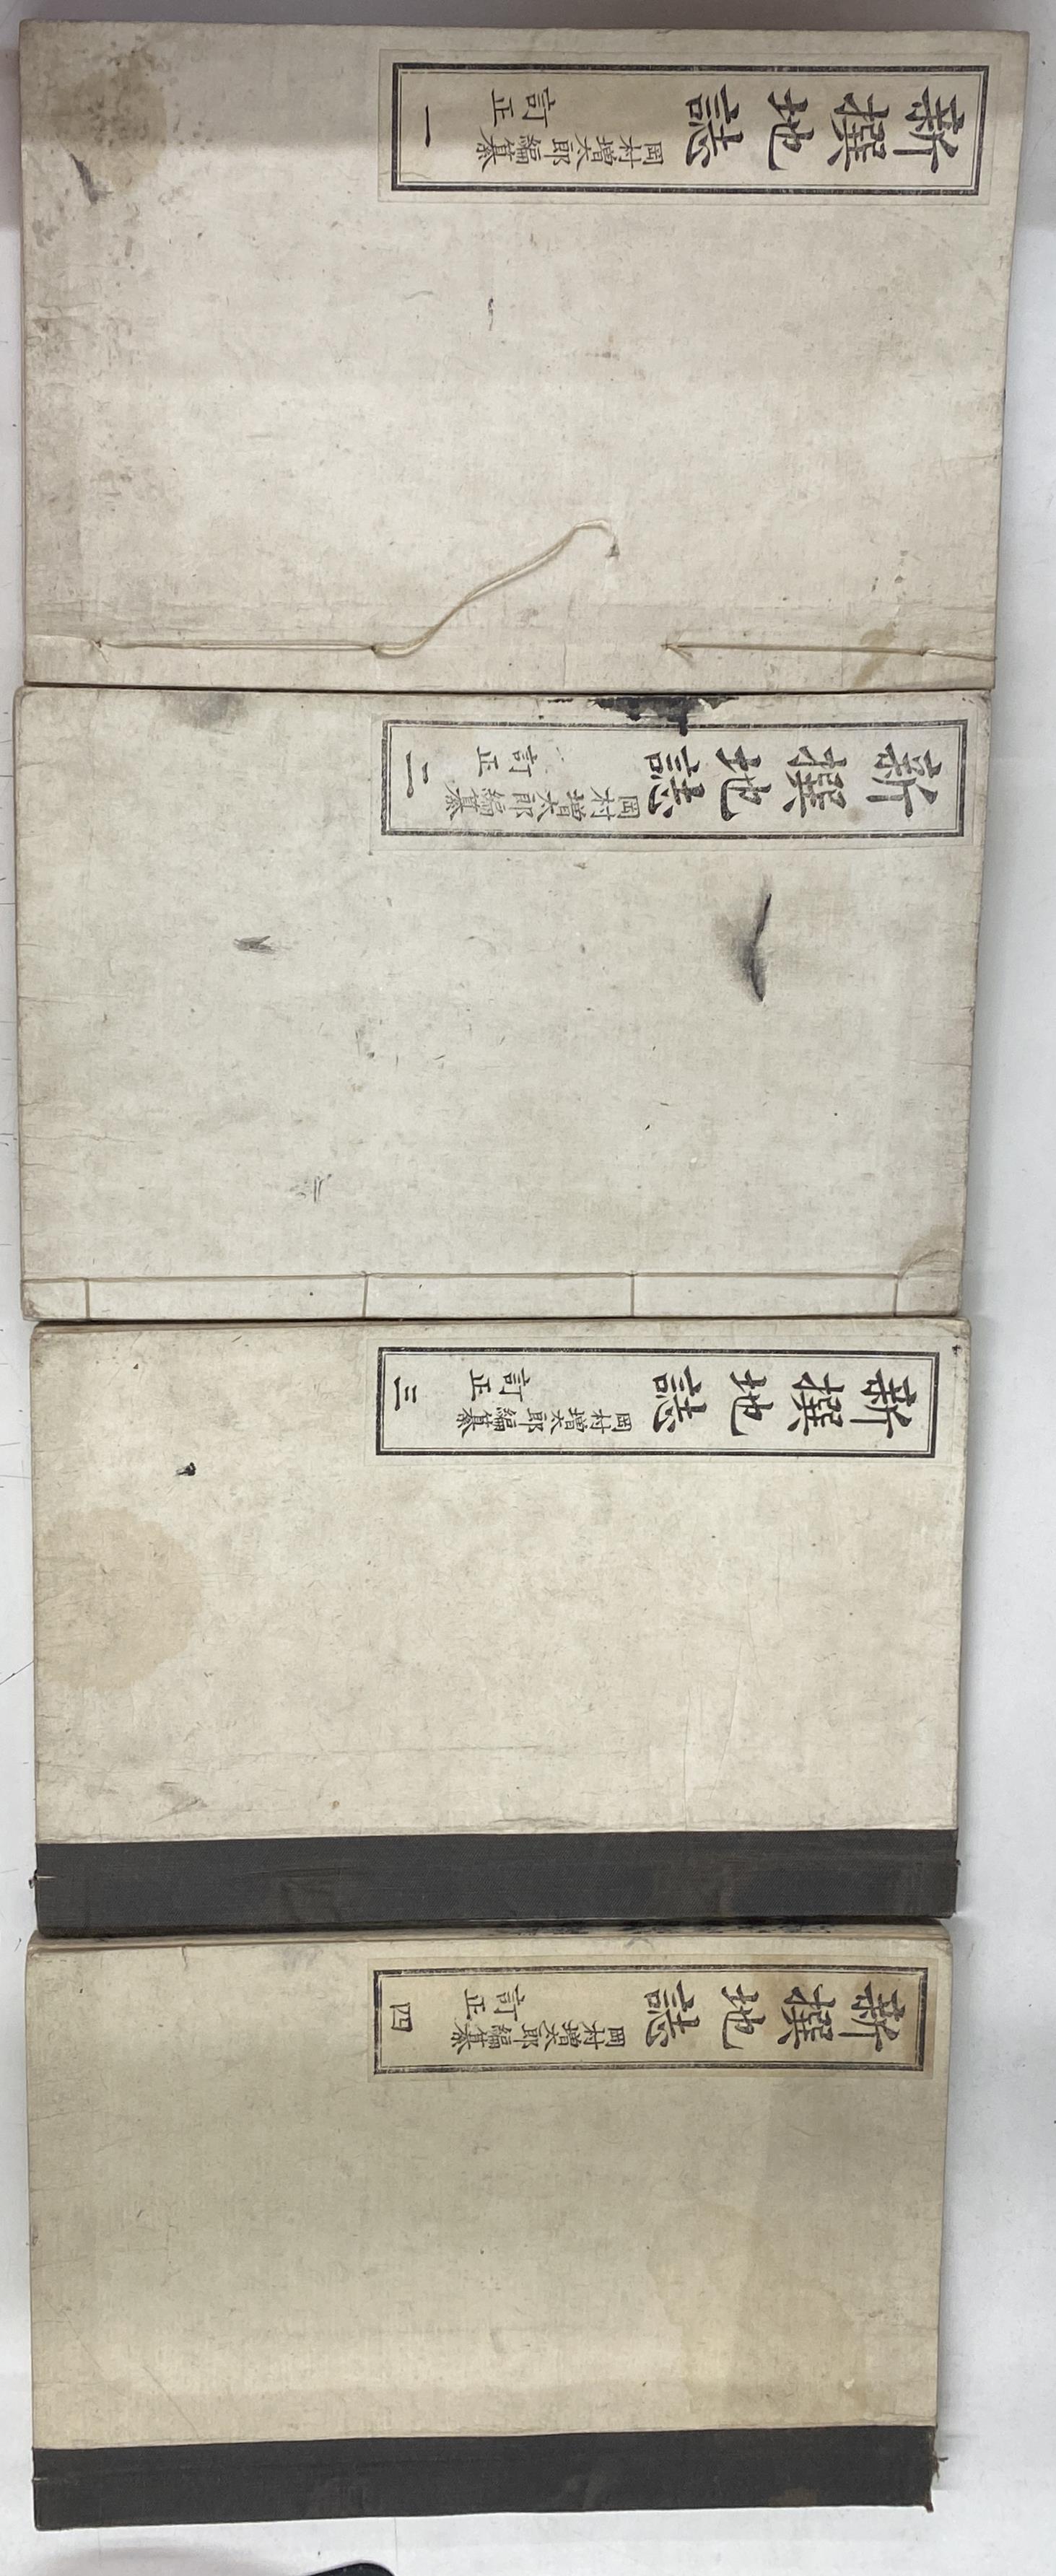 新撰地誌
岡村增太郎編纂
訂正
一
新撰地誌
岡村增太郎編纂
訂正
二
新撰地誌
岡村增太郎編纂
訂正
三
新撰地誌
岡村增太郎編纂
訂正
四